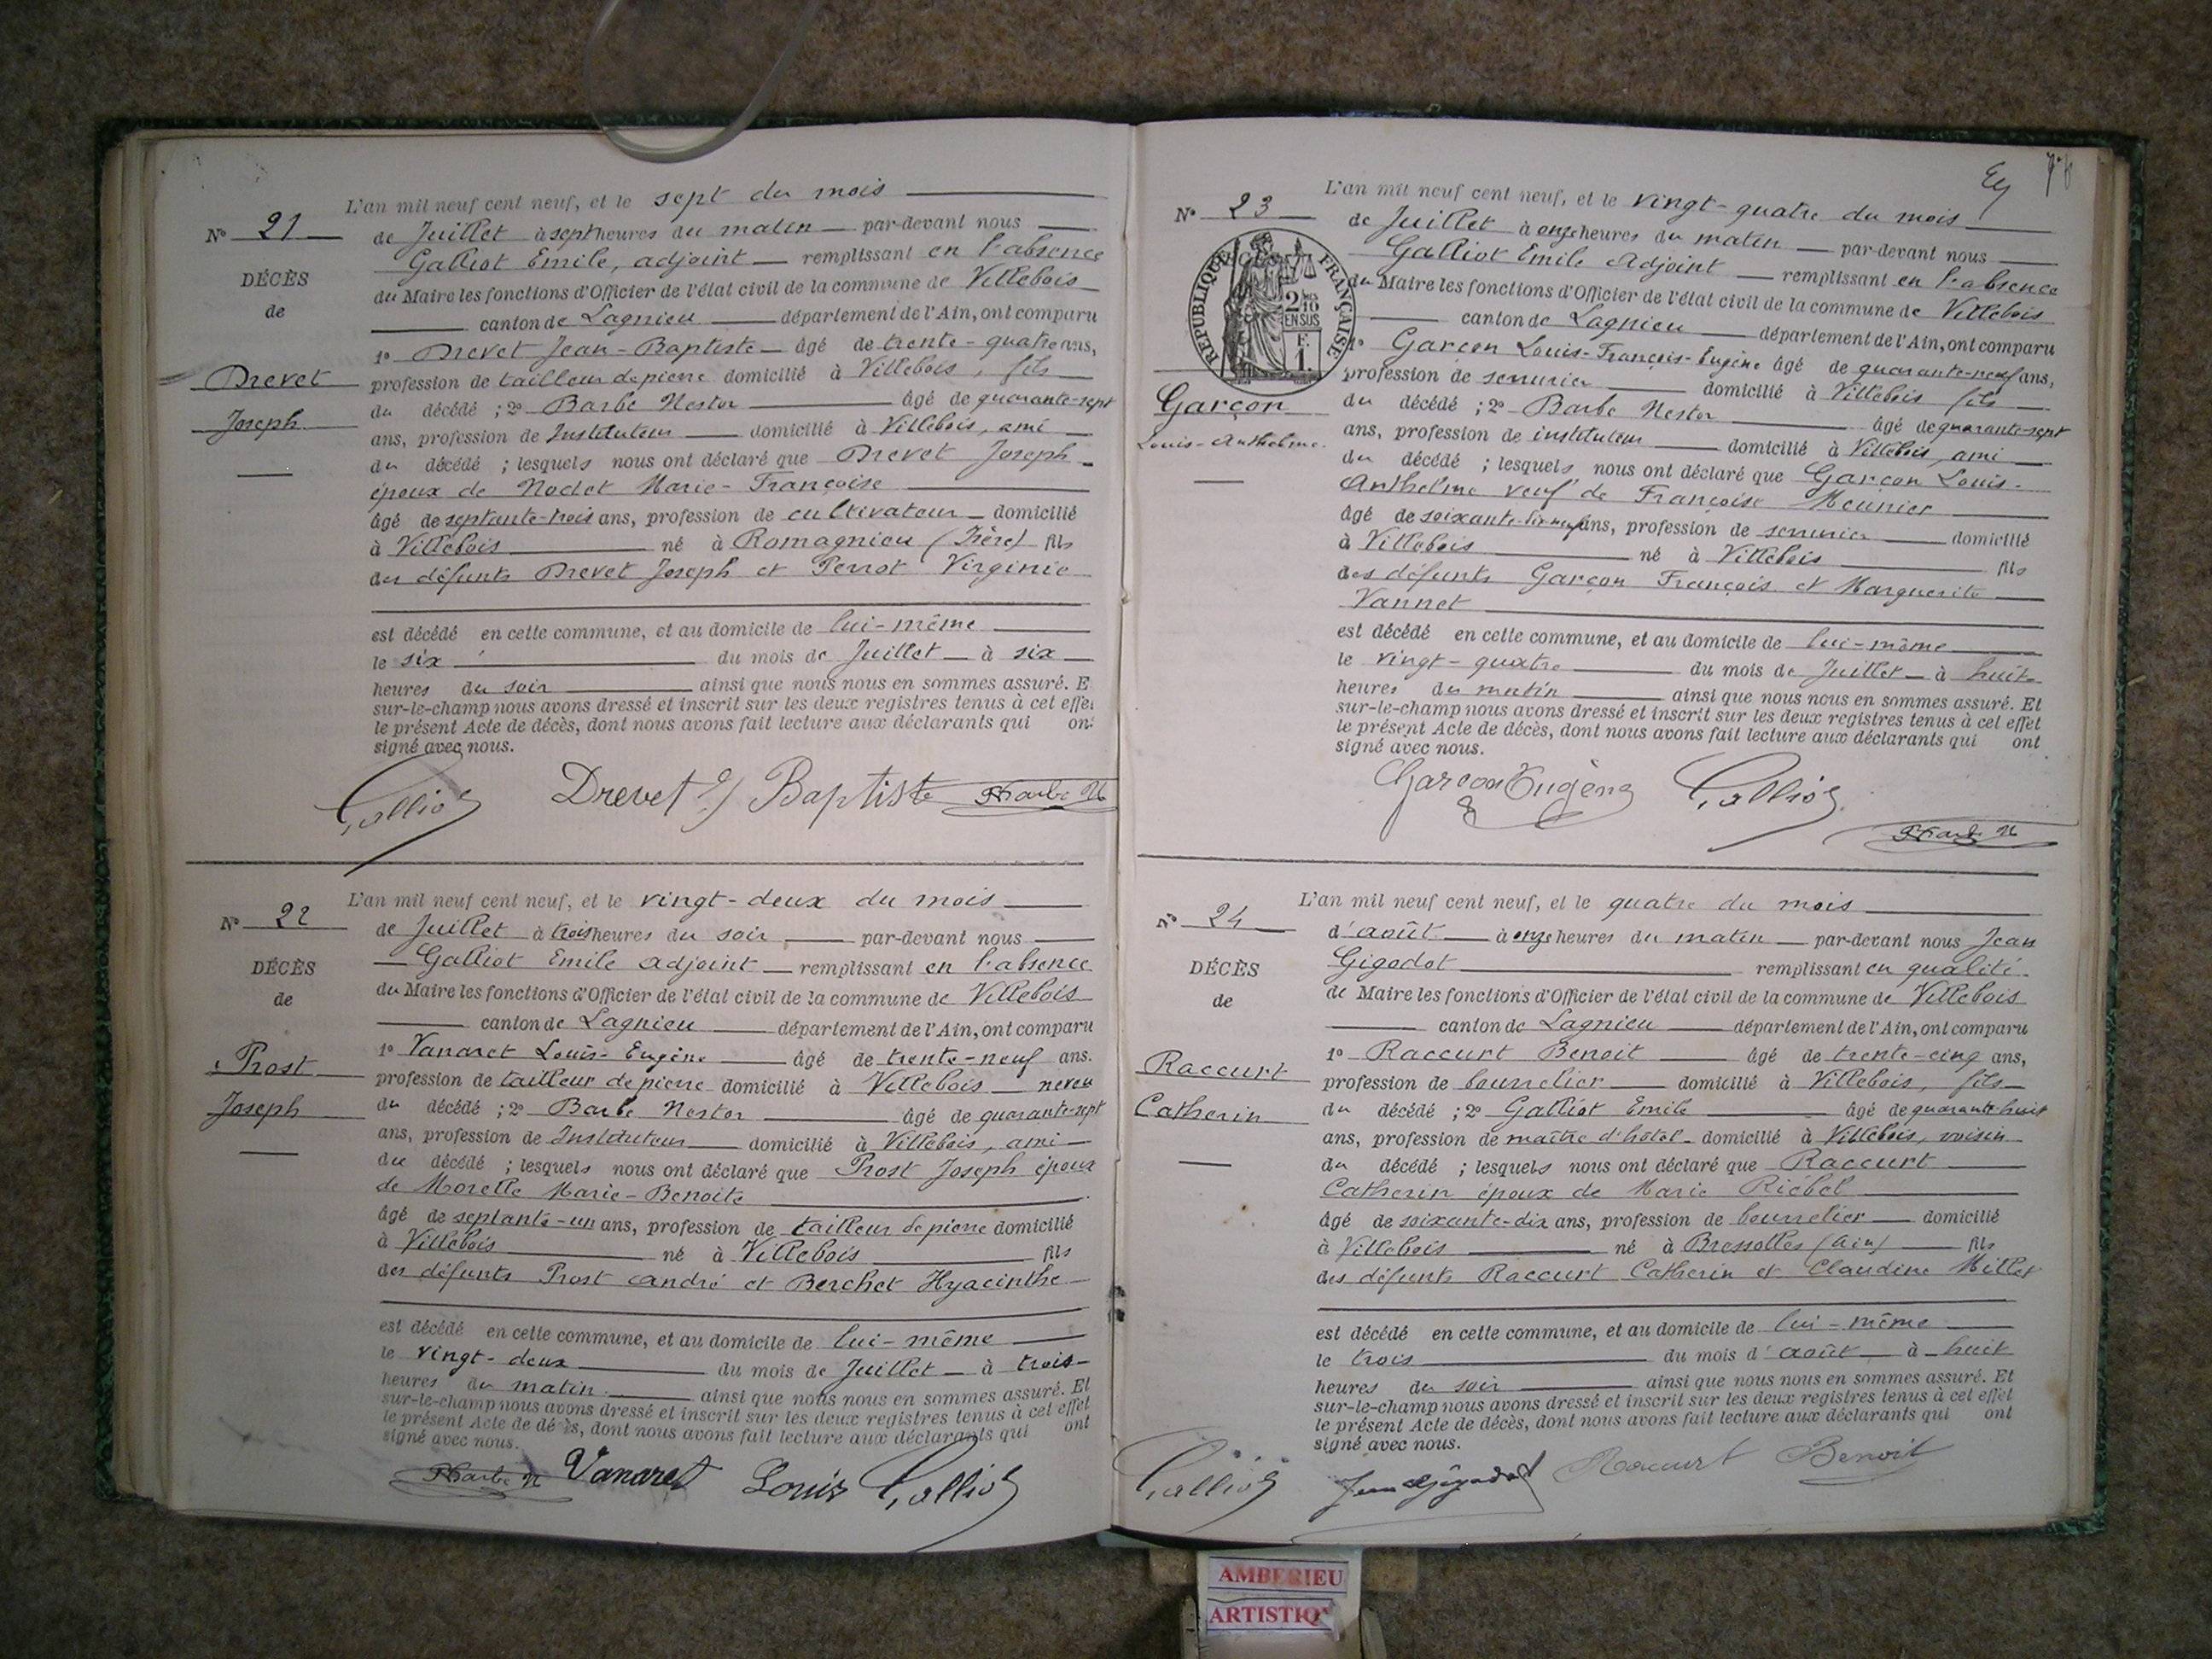 L'an mil neuf cent neuf, et le sept du mois
N° 21
de Juillet à sept heures du matin par-devant nous
Galliot Emile, adjoint remplissant en l'absence
DÉCÈS
du Maire les fonctions d'Officier de l'état civil de la commune de Villebois
de
canton de Lagnieu département de l'Ain, ont comparu
1° Drevet Jean-Baptiste âgé de trente-quatre ans,
Drevet
profession de tailleur de pierre domicilié à Villebois, fils
du décédé ; 2° Barbe Nestor âgé de quarante-sept
Joseph
ans, profession de Instituteur domicilié à Villebois, ami
du décédé ; lesquels nous ont déclaré que Drevet Joseph
époux de Nodet Marie-Françoise
âgé de septante-trois ans, profession de cultivateur domicilié
à Villebois né à Romagnieu (Isère) fils
des défunts Drevet Joseph et Perrot Virginie
est décédé en cette commune, et au domicile de lui-même
le six du mois de Juillet à six
heures du soir ainsi que nous nous en sommes assuré. E
sur-le-champ nous avons dressé et inscrit sur les deux registres tenus à cet effet
le présent Acte de décès, dont nous avons fait lecture aux déclarants qui ont
signé avec nous.
Galliot Drevet J Baptiste Barbe N
L'an mil neuf cent neuf, et le vingt-deux du mois
N° 22
de Juillet à trois heures du soir par-devant nous
Galliot Emile adjoint remplissant en l'absence
DÉCÈS
du Maire les fonctions d'Officier de l'état civil de la commune de Villebois
de
canton de Lagnieu département de l'Ain, ont comparu
1° Vanaret Louis-Eugène âgé de trente-neuf ans.
Prost
profession de tailleur de pierre domicilié à Villebois neveu
du décédé ; 2° Barbe Nestor âgé de quarante-sept
Joseph
ans, profession de Instituteur domicilié à Villebois, ami
du décédé ; lesquels nous ont déclaré que Prost Joseph époux
de Morelle Marie-Benoite
âgé de septante-un ans, profession de tailleur de pierre domicilié
à Villebois né à Villebois fils
des défunts Prost andré et Berchet Hyacinthe
est décédé en cette commune, et au domicile de lui-même
le vingt-deux du mois de Juillet à trois
heures du matin ainsi que nous nous en sommes assuré. Et
sur-le-champ nous avons dressé et inscrit sur les deux registres tenus à cet effet
le présent Acte de décès, dont nous avons fait lecture aux déclarants qui ont
signé avec nous.
Barbe N Vanaret Louis Galliot
L'an mil neuf cent neuf, et le vingt-quatre du mois
N° 23
de Juillet à onze heures du matin par-devant nous
Galliot Emile Adjoint remplissant en l'absence
RÉPUBLIQUE FRANÇAISE
2/10 EN SUS
F. 1.
du Maire les fonctions d'Officier de l'état civil de la commune de Villebois
canton de Lagnieu département de l'Ain, ont comparu
1° Garçon Louis-François-Eugène âgé de quarante-neuf ans,
profession de serrurier domicilié à Villebois fils
Garçon
du décédé ; 2° Barbe Nestor âgé de quarante-sept
Louis-Anthelme
ans, profession de instituteur domicilié à Villebois, ami
du décédé ; lesquels nous ont déclaré que Garçon Louis-
Anthelme veuf de Françoise Meunier
âgé de soixante-dix-neuf ans, profession de serrurier domicilié
à Villebois né à Villebois fils
des défunts Garçon François et Marguerite
Vannet
est décédé en cette commune, et au domicile de lui-même
le vingt-quatre du mois de Juillet à huit
heures du matin ainsi que nous nous en sommes assuré. Et
sur-le-champ nous avons dressé et inscrit sur les deux registres tenus à cet effet
le présent Acte de décès, dont nous avons fait lecture aux déclarants qui ont
signé avec nous.
Garçon Eugène Galliot
Barbe N
L'an mil neuf cent neuf, et le quatre du mois
N° 24
d'août à onze heures du matin par-devant nous Jean
Gigodot remplissant en qualité
DÉCÈS
de Maire les fonctions d'Officier de l'état civil de la commune de Villebois
de
canton de Lagnieu département de l'Ain, ont comparu
1° Raccurt Benoit âgé de trente-cinq ans,
Raccurt
profession de bourrelier domicilié à Villebois, fils
Catherin
du décédé ; 2° Galliot Emile âgé de quarante-huit
ans, profession de maître d'hôtel domicilié à Villebois, voisin
du décédé ; lesquels nous ont déclaré que Raccurt
Catherin époux de Marie Riébel
âgé de soixante-dix ans, profession de bourrelier domicilié
à Villebois né à Bressolles (Ain) fils
des défunts Raccurt Catherin et Claudine Millet
est décédé en cette commune, et au domicile de lui-même
le trois du mois d'août à huit
heures du soir ainsi que nous nous en sommes assuré. Et
sur-le-champ nous avons dressé et inscrit sur les deux registres tenus à cet effet
le présent Acte de décès, dont nous avons fait lecture aux déclarants qui ont
signé avec nous.
Galliot Jean Gigodot Raccurt Benoit
AMBERIEU
ARTISTIQ